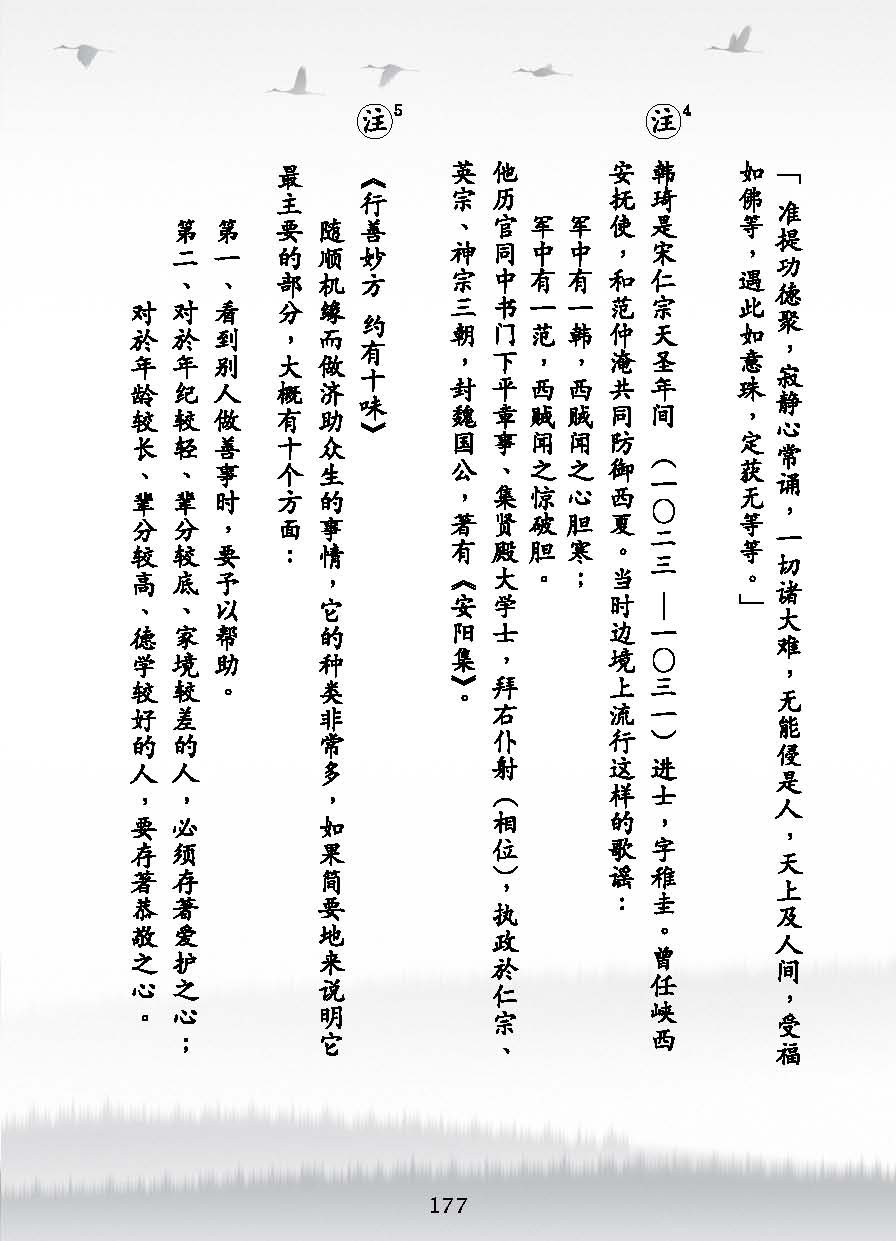 「准提功德聚，寂静心常诵，一切诸大难，无能侵是人，天上及人间，受福
如佛等，遇此如意珠，定获无等等。」
注4
韩琦是宋仁宗天圣年间（一〇二三—一〇三一）进士，字稚圭。曾任峡西
安抚使，和范仲淹共同防御西夏。当时边境上流行这样的歌谣：
军中有一韩，西贼闻之心胆寒；
军中有一范，西贼闻之惊破胆。
他历官同中书门下平章事、集贤殿大学士，拜右仆射（相位），执政於仁宗、
英宗、神宗三朝，封魏国公，著有《安阳集》。
注5
《行善妙方 约有十味》
随顺机缘而做济助众生的事情，它的种类非常多，如果简要地来说明它
最主要的部分，大概有十个方面：
第一、看到别人做善事时，要予以帮助。
第二、对於年纪较轻、辈分较底、家境较差的人，必须存著爱护之心；
对於年龄较长、辈分较高、德学较好的人，要存著恭敬之心。
177